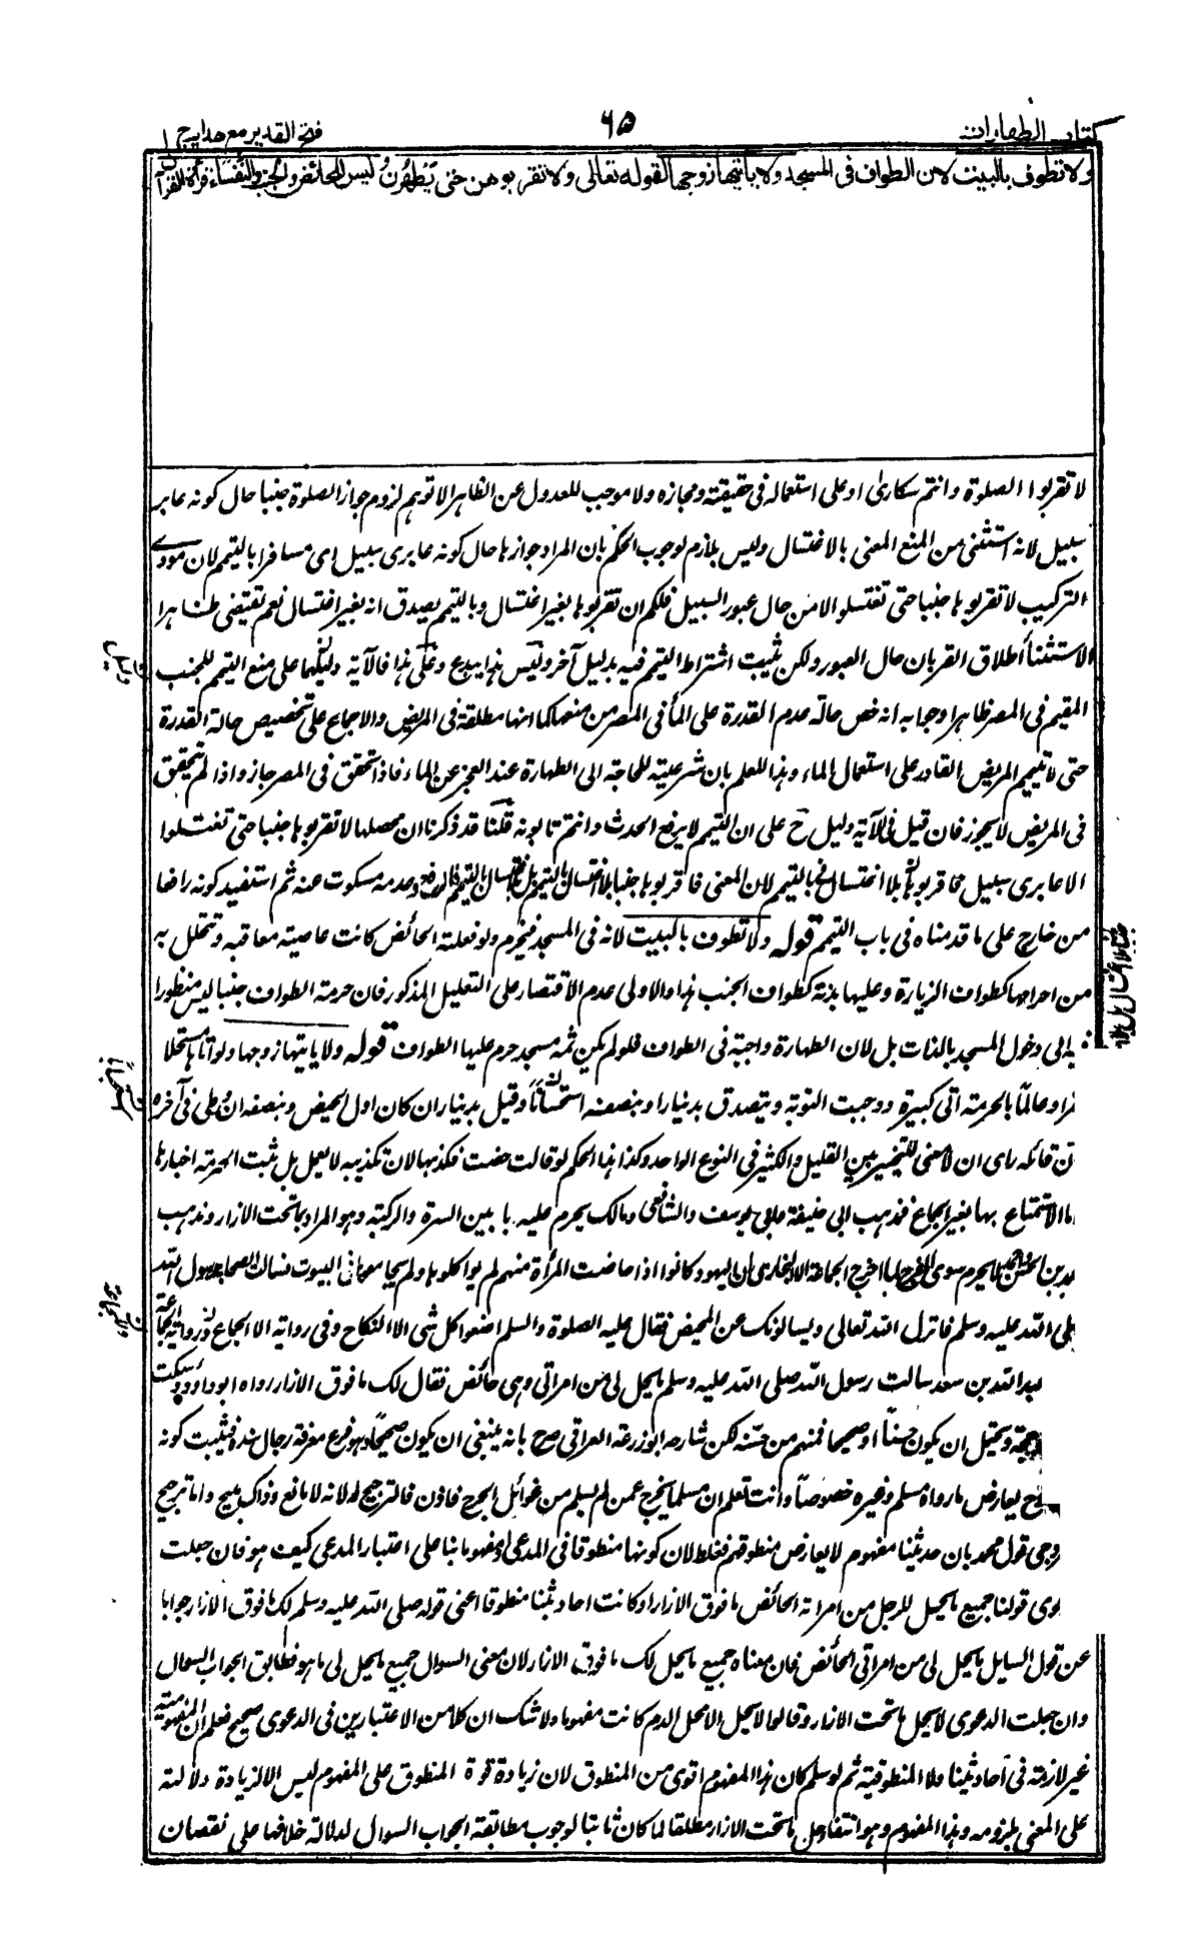 كتاب الطهارات
٦٥
فتح القدير مع هدايه ج ١
ولا تطوف بالبيت لان الطواف فى المسجد ولا ياتيها زوجها لقوله تعالى ولا تقربوهن حتى يَطْهُرْنَ ليس للحائض والجنب والنفساء قرأة القرآن
لا تقربوا الصلوة وانتم سكارى او على استعماله فى حقيقته ومجازه ولا موجب للعدول عن الظاهر الا توهم لزوم جواز الصلوة جنبا حال كونه عابر
سبيل لانه استثنى من المنع المغيى بالاغتسال وليس بلازم لوجوب الحكم بان المراد جوازها حال كونه عابرى سبيل اى مسافرا بالتيمم لان مودى
التركيب لا تقربوها جنبا حتى تغتسلوا الا من حال عبور السبيل فلكم ان تقربوها بغير اغتسال وبالتيمم يصدق انه بغير اغتسال نعم تقتضى ظاهرا
الاستثناء اطلاق القربان حال العبور ولكن ثبت اشتراط التيمم فيه بدليل آخر وليس هذا ببدع وعلى هذا فالآية دليلهما على منع التيمم للجنب
المقيم فى المصر ظاهرا وجوابه انه خص حالة عدم القدرة على الماء فى المصر من منعها كما انها مطلقة فى المريض والاجماع على تخصيص حالة القدرة
حتى لا تيمم المريض القادر على استعمال الماء وهذا للعلم بان شرعيته للحاجة الى الطهارة عند العجز عن الماء فاذا تحقق فى المصر جاز واذا لم يتحقق
فى المريض لا يجوز فان قيل فى الآية دليل ح على ان التيمم لا يرفع الحدث وانتم تابونه قلنا قد ذكرنا ان محصلها لا تقربوها جنبا حتى تغتسلوا
الا عابرى سبيل فاقربوها بلا اغتسال بالتيمم لان المعنى فاقربوها جنبا بلا اغتسال بالتيمم وعدمه مسكوت عنه ثم استفيد كونه رافعا
من خارج على ما قدمناه فى باب التيمم قوله ولا تطوف بالبيت لانه فى المسجد فيحرم ولو فعلته الحائض كانت عاصية معاقبة وتتحلل به
من احرامها كطواف الزيارة وعليها بدنة كطواف الجنب هذا والاولى عدم الاقتصار على التعليل المذكور فان حرمة الطواف جنبا ليس منظورا
يه الى دخول المسجد بالذات بل لان الطهارة واجبة فى الطواف فلو لم يكن ثمه مسجد حرم عليها الطواف قوله ولا ياتيها زوجها ولو اتاها مستحلا
او عالما بالحرمة اتى كبيرة ووجبت التوبة ويتصدق بدينار او بنصفه استحبابا وقيل بدينار ان كان اول الحيض وبنصفه ان وطى فى آخره
ن قائله راى ان لا معنى للتخيير بين القليل والكثير فى النوع الواحد وكذا هذا الحكم لو قالت حضت فكذبها لان تكذيبه لا يعمل بل ثبت الحرمة باخبارها
اما الاستمتاع بها بغير الجماع فمذهب ابى حنيفة وابى يوسف والشافعى ومالك يحرم عليه ما بين السرة والركبة وهو المراد بما تحت الازار ومذهب
بن الحسن لا يحرم سوى الفرج لما اخرج الجماعة الا البخارى ان اليهود كانوا اذا حاضت المرأة منهم لم يواكلوها ولم يجامعوها فى البيوت فسالت الصحابة رسول الله
لى الله عليه وسلم فانزل الله تعالى ويسالونك عن المحيض فقال عليه الصلوة والسلم اصنعوا كل شى الا النكاح وفى رواية الا الجماع
بد الله بن سعد سالت رسول الله صلى الله عليه وسلم ما يحل لى من امراتى وهى حائض فقال لك ما فوق الازار رواه ابو داود وسكت
حجة ويحتمل ان يكون حسنا او صحيحا فمنهم من حسنه لكن شارحه ابو زرعة العراقى صرح بانه ينبغى ان يكون صحيحا وهو فرع معرفة رجال سنده فثبت كونه
يعارض ما رواه مسلم وغيره خصوصا وانت تعلم ان مسلما يخرج عمن لم يسلم من غوائل الجرح فاذن فالترجيح له لانه مانع وذاك مبيح واما ترجيح
وجى قول محمد بان حديثنا مفهوم لا يعارض منطوقهم فغلط لان كونها منطوقا فى المدعى او مفهوما بناء على اعتبار المدعى كيف هو فان جعلت
وى قولنا جميع ما يحل للرجل من امراته الحائض ما فوق الازار كانت احاديثنا منطوقا اعنى قوله صلى الله عليه وسلم لك ما فوق الازار جوابا
عن قول السايل ما يحل لى من امراتى الحائض فان معناه جميع ما يحل لك ما فوق الازار لان معنى السوال جميع ما يحل لى ما هو فطابق الجواب السوال
وان جعلت الدعوى لا يحل ما تحت الازار وقالوا لا يحل الا محل الدم كانت مفهوما ولا شك ان كلا من الاعتبارين فى الدعوى صحيح فعلم ان المفهومية
غير لازمة فى احاديثنا ولا المنطوقية ثم لو سلم كان هذا المفهوم اقوى من المنطوق لان زيادة قوة المنطوق على المفهوم ليس الا لزيادة دلالته
على المعنى للزومه وهذا المفهوم وهو انتفاء حل ما تحت الازار مطلقا لما كان ثابتا لوجوب مطابقة الجواب السوال لدلالة خلافها على نقصان